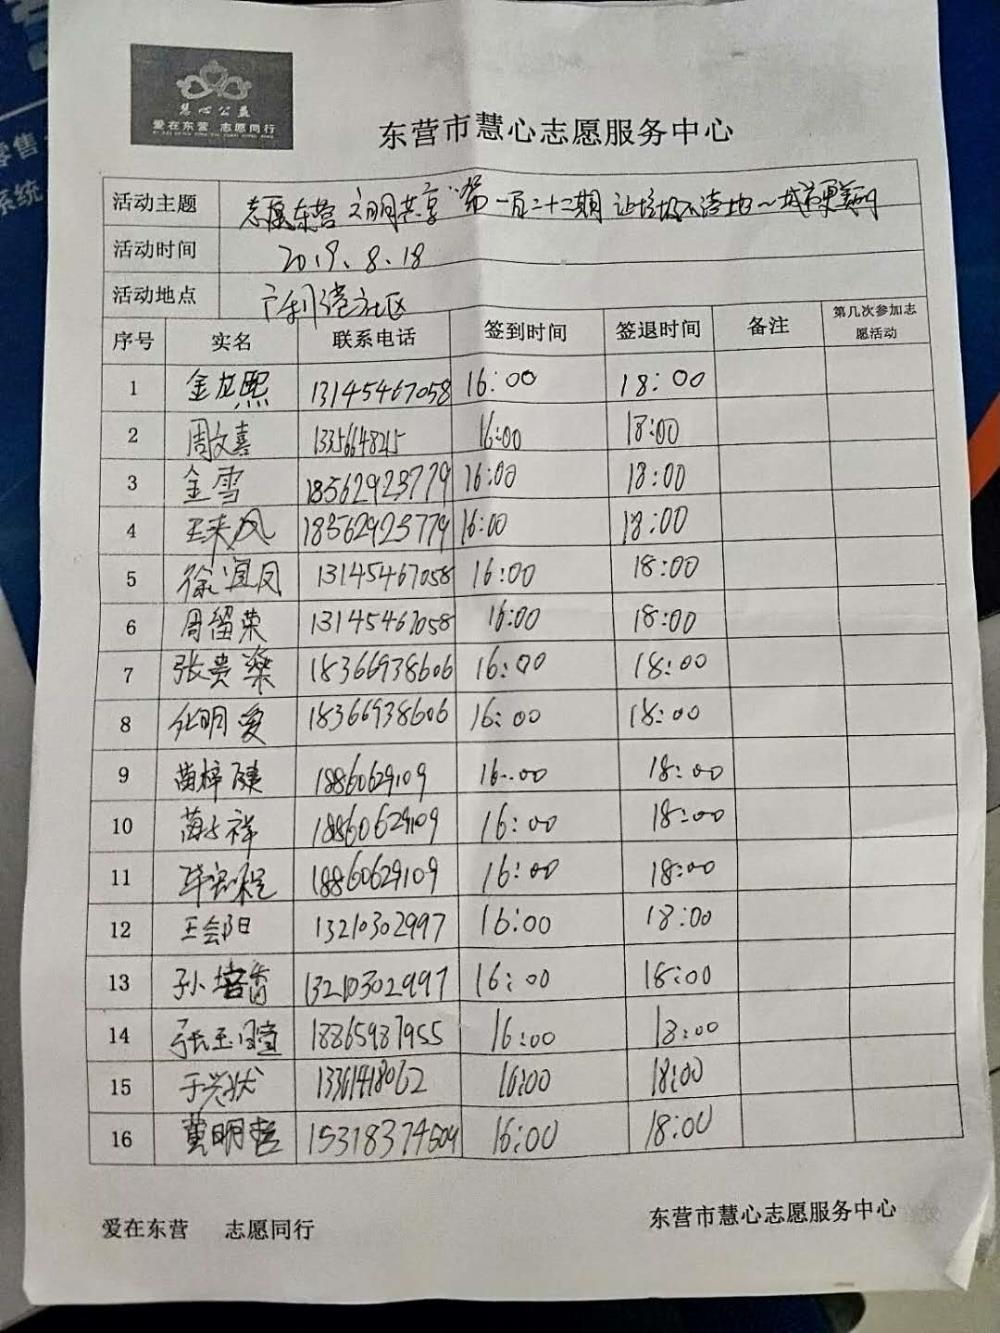 慧心公益
爱在东营 志愿同行
零售
系统
东营市慧心志愿服务中心
活动主题 志愿东营 文明共享 第一百二十二期 让垃圾不落地~城市更美丽
活动时间 2019.8.18
活动地点 广利港社区
序号 实名 联系电话 签到时间 签退时间 备注 第几次参加志愿活动
1 金龙熙 13145467058 16:00 18:00
2 周文喜 16:00 18:00
3 金雪 18562923779 16:00 18:00
4 王来风 18562923779 16:00 18:00
5 徐宜凤 13145467058 16:00 18:00
6 周留荣 13145467058 16:00 18:00
7 张贵梁 18366938606 16:00 18:00
8 18366938606 16:00 18:00
9 18860629109 16:00 18:00
10 18860629109 16:00 18:00
11 18860629109 16:00 18:00
12 王会阳 13210302997 16:00 18:00
13 孙培香 13210302997 16:00 18:00
14 18865937955 16:00 18:00
15 13361418062 16:00 18:00
16 15318374509 16:00 18:00
爱在东营 志愿同行
东营市慧心志愿服务中心